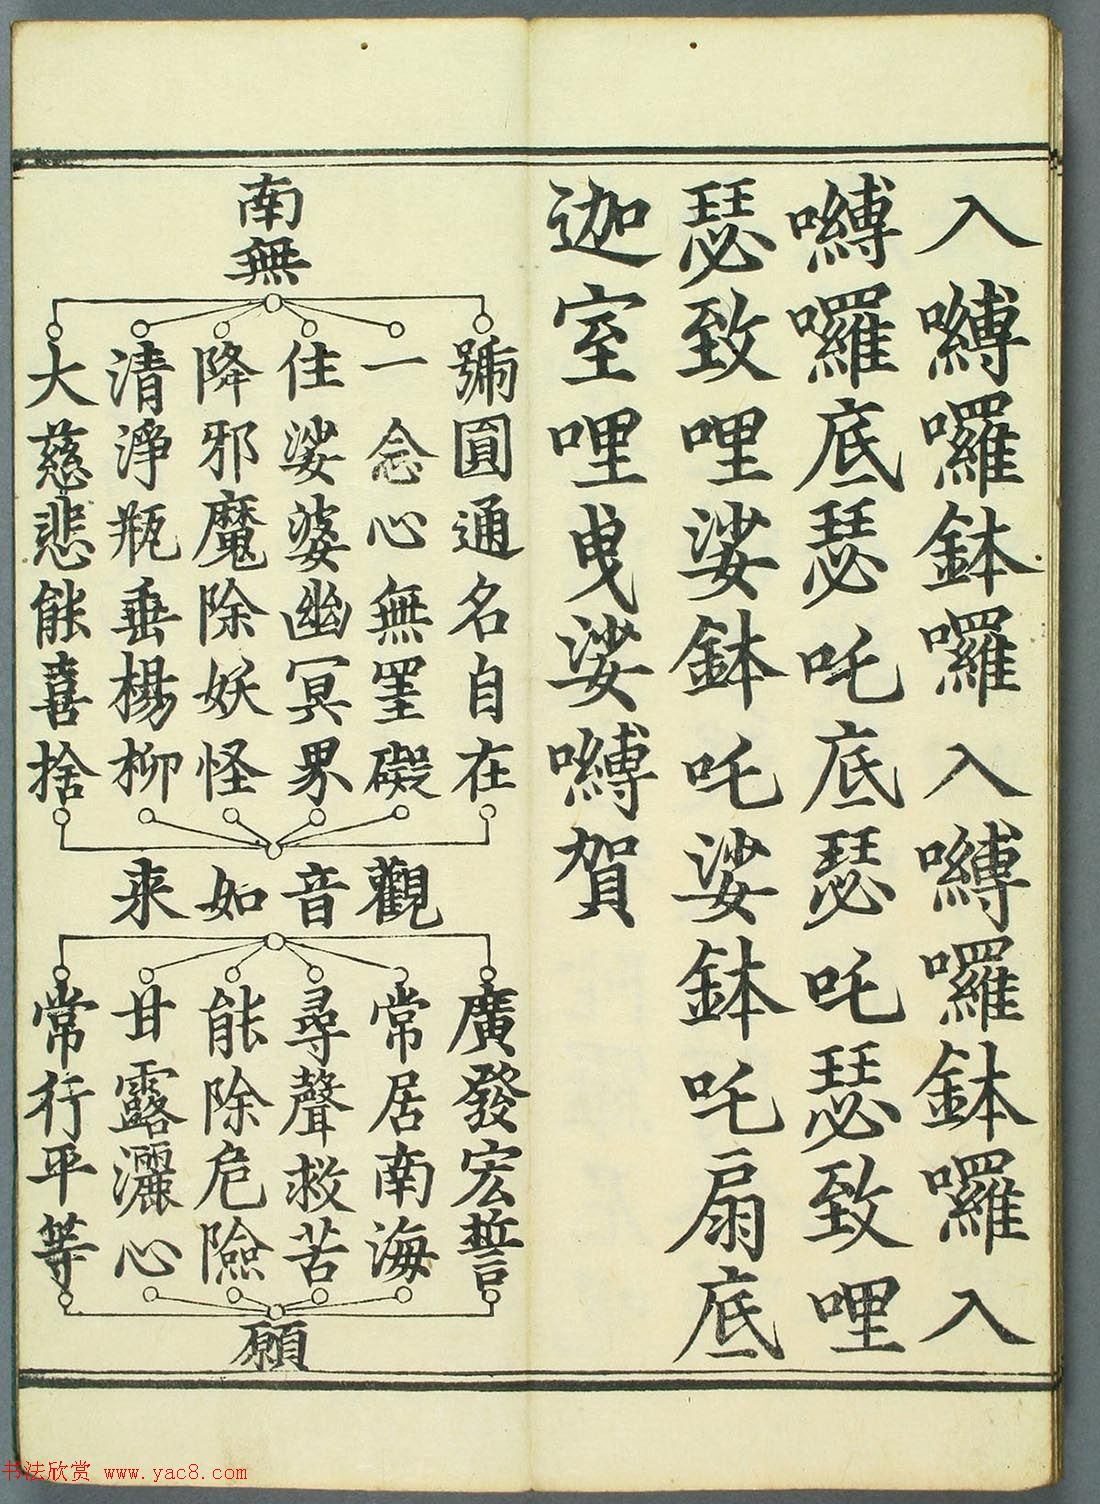 入嚩囉鉢囉入嚩囉鉢囉入
嚩囉底瑟吒底瑟吒瑟致哩
瑟致哩娑鉢吒娑鉢吒扇底
迦室哩曳娑嚩賀
南無
號圓通名自在
一念心無罣礙
住娑婆幽冥界
降邪魔除妖怪
清淨瓶垂楊柳
大慈悲能喜捨
觀音如来
廣發宏誓
常居南海
尋聲救苦
能除危險
甘露灑心
常行平等
願
书法欣赏 www.yac8.com